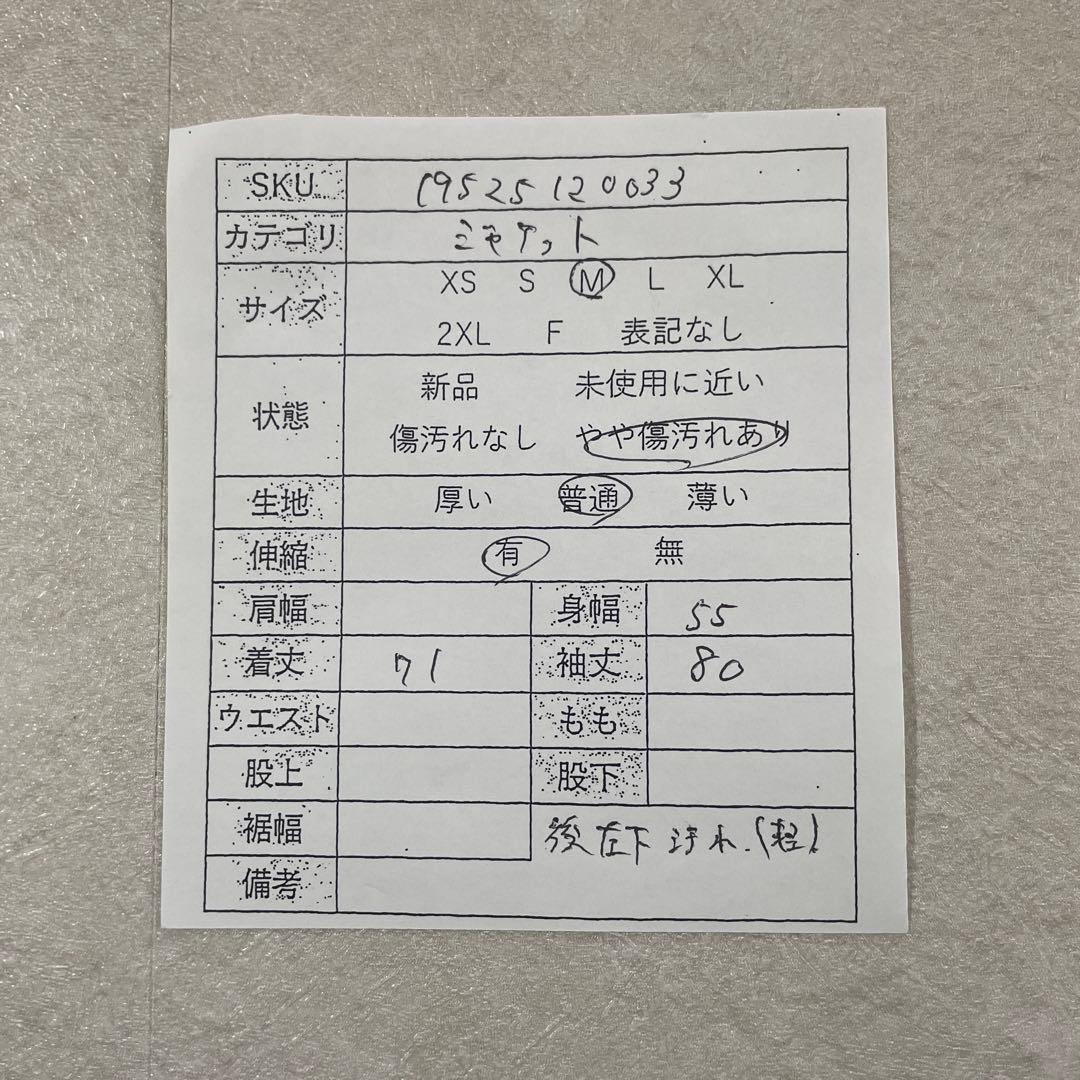 SKU 19525120033
カテゴリ ジャケット
サイズ XS S M L XL
2XL F 表記なし
状態 新品 未使用に近い
傷汚れなし やや傷汚れあり
生地 厚い 普通 薄い
伸縮 有 無
肩幅 身幅 55
着丈 71 袖丈 80
ウエスト もも
股上 股下
裾幅 後左下 汚れ.(軽)
備考